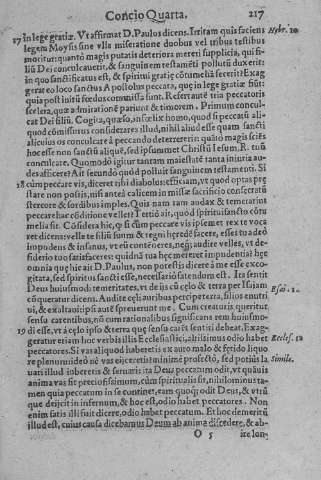 Concio Quarta. 217
17 in lege gratiæ. Vt affirmat D. Paulus dicens. Irritam quis faciens Hebr. 10
legem Moysis sine vlla miseratione duobus vel tribus testibus
moritur: quantò magis putatis deteriora mereri supplicia, qui fi-
lium Dei conculcauerit, & sanguinem testamēti pollutū duxerit:
in quo sanctificatus est, & spiritui gratię cōtumeliā fecerit? Exag
gerat eo loco sanctus Apostolus peccata, quę in lege gratiæ fiūt:
quia post initū fœdus commissa sunt. Refert autē tria peccatoris
scelera, quæ admirationē pariunt & timorem. Primum concul-
cat Dei filiū. Cogita, quæso, infœlix homo, quod si peccatū ali-
quod cōmissurus considerares illud, nihil aliud esse quam sancti
alicuius os conculcare à peccando deterreris: quātò magis sciēs
hoc esse non sanctū aliquē, sed ipsummet Christū Iesum,
conculcare. Quomodò igitur tantam maiestatē tanta iniuria au-
des afficere? Ait secundò quòd polluit sanguinem testamenti. Si
18 cùm peccare vis, diceret tibi diabolus: etiā, vt quod optas pre
stare non possis, nisi anteà calicem in missæ sacrificio consecratū
stercore & sordibus imples. Quis nam tam audax & temerarius
peccare hac cōditione vellet? Tertiò ait, quod spiritui sancto cōtu
melia fit. Cōsidera hîc, ꝙ si cùm peccare vis ipsemet rex te voca
ret dicens: velle te filiū suum & regni hęredē facere, esses tu adeò
impudens & insanus, vt eū contēneres, neq; audire velles, vt de-
siderio tuo satisfaceres: quidnā tua hæc meretur impudentia? hęc
omnia quę hîc ait D. Paulus, non potest is dicere à me esse exco-
gitata, sed spiritus sancti esse, necessariò fatendum est. Ita sentit
Deus huiusmodi temeritates, vt de ijs cū cęlo & terra per Isaiam Esai. 1.
cōqueratur dicens. Audite cęli auribus percipe terra, filios enutri
ui, & exaltaui: ipsi autē spreuerunt me. Cum creaturis queritur
sensu carentibus, nō cum rationalibus significans rem huiusmo-
19 di esse, vt à cęlo ipso & terra quę sensu carēt sentiri debeat. Exag-
geratur etiam hoc verbis illis Ecclesiastici, altissimus odio habet Eccles. 12
peccatores. Si vas aliquod haberetis ex auro malo & fœtido liquo
re plenum: ideò nè vas eijceretis minimè profectò, sed potiùs la Simile.
uati illud iuberetis & seruari: ita Deus peccatum odit, vt quāuis
anima vas sit preciosissimum, cùm spiritualis sit, nihilominus ta-
men quia peccatum in se continet, eam quoq; odit Deus, & vtrū
que deijcit in infernum, & hoc est, odio habet peccatores. Non
enim satis illi fuit dicere, odio habet peccatum. Et hoc demeritū
illud est, cuius causa dicebamus Deum ab anima discedere, & ab-
O 5 ire lon-